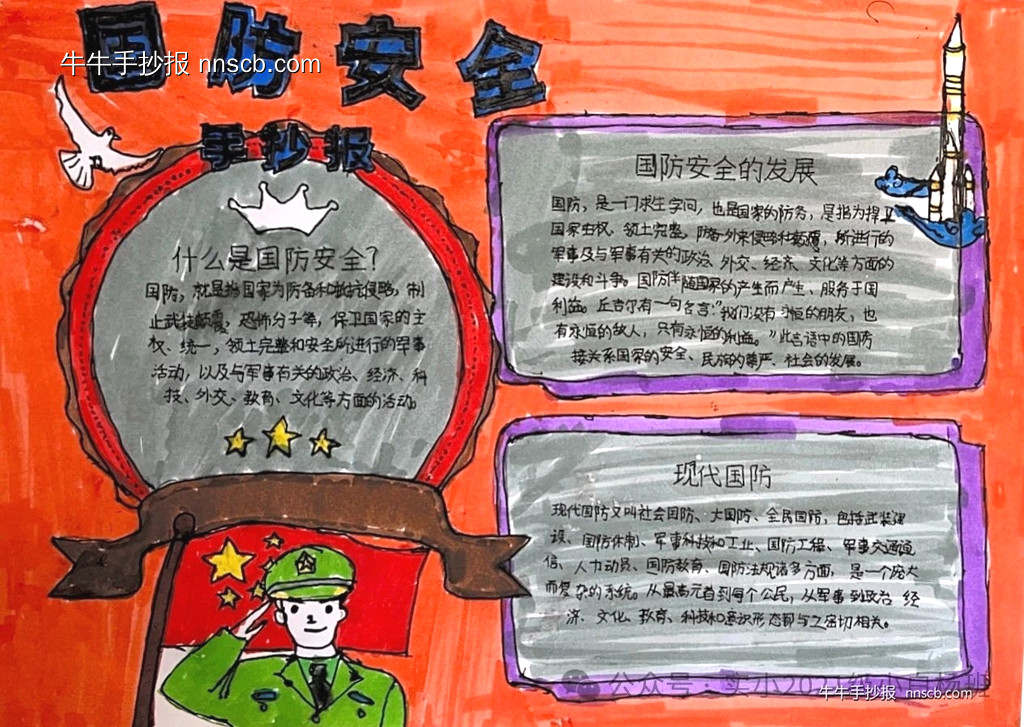 国防安全
牛牛手抄报 nnscb.com
手抄报
什么是国防安全?
国防，就是指国家为防备和抵抗侵略，制
止武装颠覆，恐怖分子等，保卫国家的主
权、统一，领土完整和安全所进行的军事
活动，以及与军事有关的政治、经济、科
技、外交、教育、文化等方面的活动。
国防安全的发展
国防，是一门求生学问，也是国家的防务，是指为捍卫
国家主权、领土完整，防备外来侵略和颠覆，所进行的
军事及与军事有关的政治、外交、经济、文化等方面的
建设和斗争。国防伴随国家的产生而产生、服务于国
利益。丘吉尔有一句名言："我们没有永恒的朋友，也
有永恒的敌人，只有永恒的利益。"此言语中的国防
接关系国家的安全、民族的尊严、社会的发展。
现代国防
现代国防又叫社会国防、大国防、全民国防，包括武装建
设、国防体制、军事科技和工业、国防工程、军事交通通
信、人力动员、国防教育、国防法规诸多方面，是一个庞大
而复杂的系统。从最高元首到每个公民，从军事到政治 经
济、文化、教育、科技和意识形态都与之密切相关。
公众号·实小
牛牛手抄报 nnscb.com